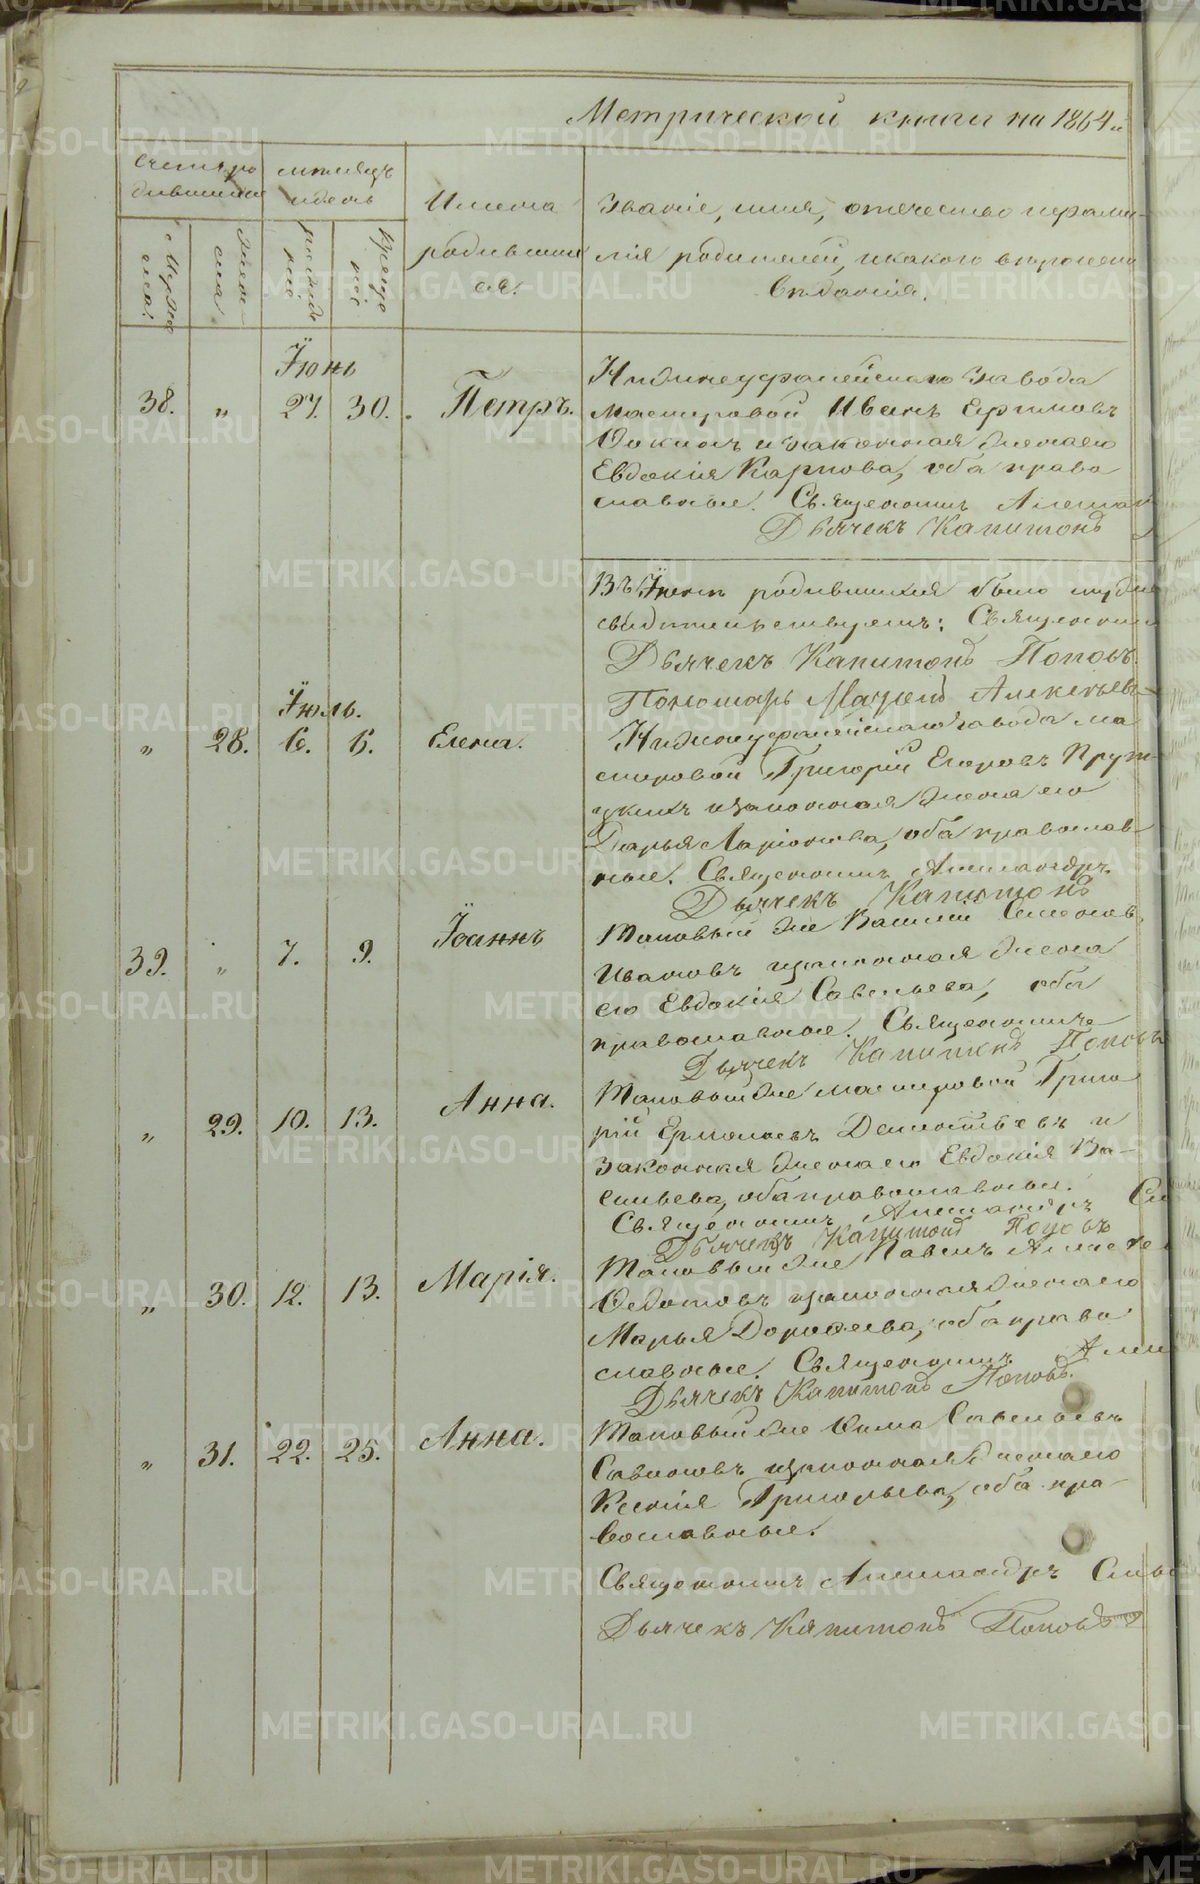 Метрической книги на 1864 й
Счетъ ро
дившихся
мѣсяцъ
и день
Имена
родивши
ся.
Званіе, имя, отечество и фами-
лія родителей, и какого вѣроиспо
вѣданія.
Мужес
ска.
Женс
ска
рожде
нія
креще
нія
Іюнь
38. „ 27. 30. Петръ.
Нижнеуфалейскаго завода
мастеровой Иванъ Ефимовъ
и законная жена его
Евдокія Карпова, оба право
славные. Священникъ Алексан
Дьячекъ Капитонъ
Въ Іюнѣ родившихся было
свидѣтельствуемъ: Священник
Дьячекъ Капитонъ Поповъ.
Пономарь Алексѣев
Іюль.
„ 28. 6. 6. Елена.
Нижнеуфалейскаго завода ма
стеровой Григорій Егоровъ
и законная жена его
Дарья Ларіонова, оба православ
ные. Священникъ Александръ
Дьячекъ Капитонъ
39. „ 7. 9. Іоаннъ
Таковый же Василій Семеновъ
Ивановъ и законная жена
его Евдокія Савельева, оба
православные. Священникъ
Дьячекъ Капитонъ Поповъ
„ 29. 10. 13. Анна.
Таковый же мастеровой Григо
рій Ермолаевъ Дементьевъ и
законная жена его Евдокія Ва-
сильева, оба православные.
Священникъ Александръ См
Дьячекъ Капитонъ Поповъ
„ 30. 12. 13. Марія.
Таковый же Павелъ Алексѣе
Федотовъ и законная жена его
Марья Дорофеева, оба право
славные. Священникъ Алек
Дьячекъ Капитонъ Поповъ.
„ 31. 22. 25. Анна.
Таковый же Фома Савельевъ
и законная жена его
Ксенія Григорьева, оба пра-
вославные.
Священникъ Александръ
Дьячекъ Капитонъ Поповъ
METRIKI.GASO-URAL.RU